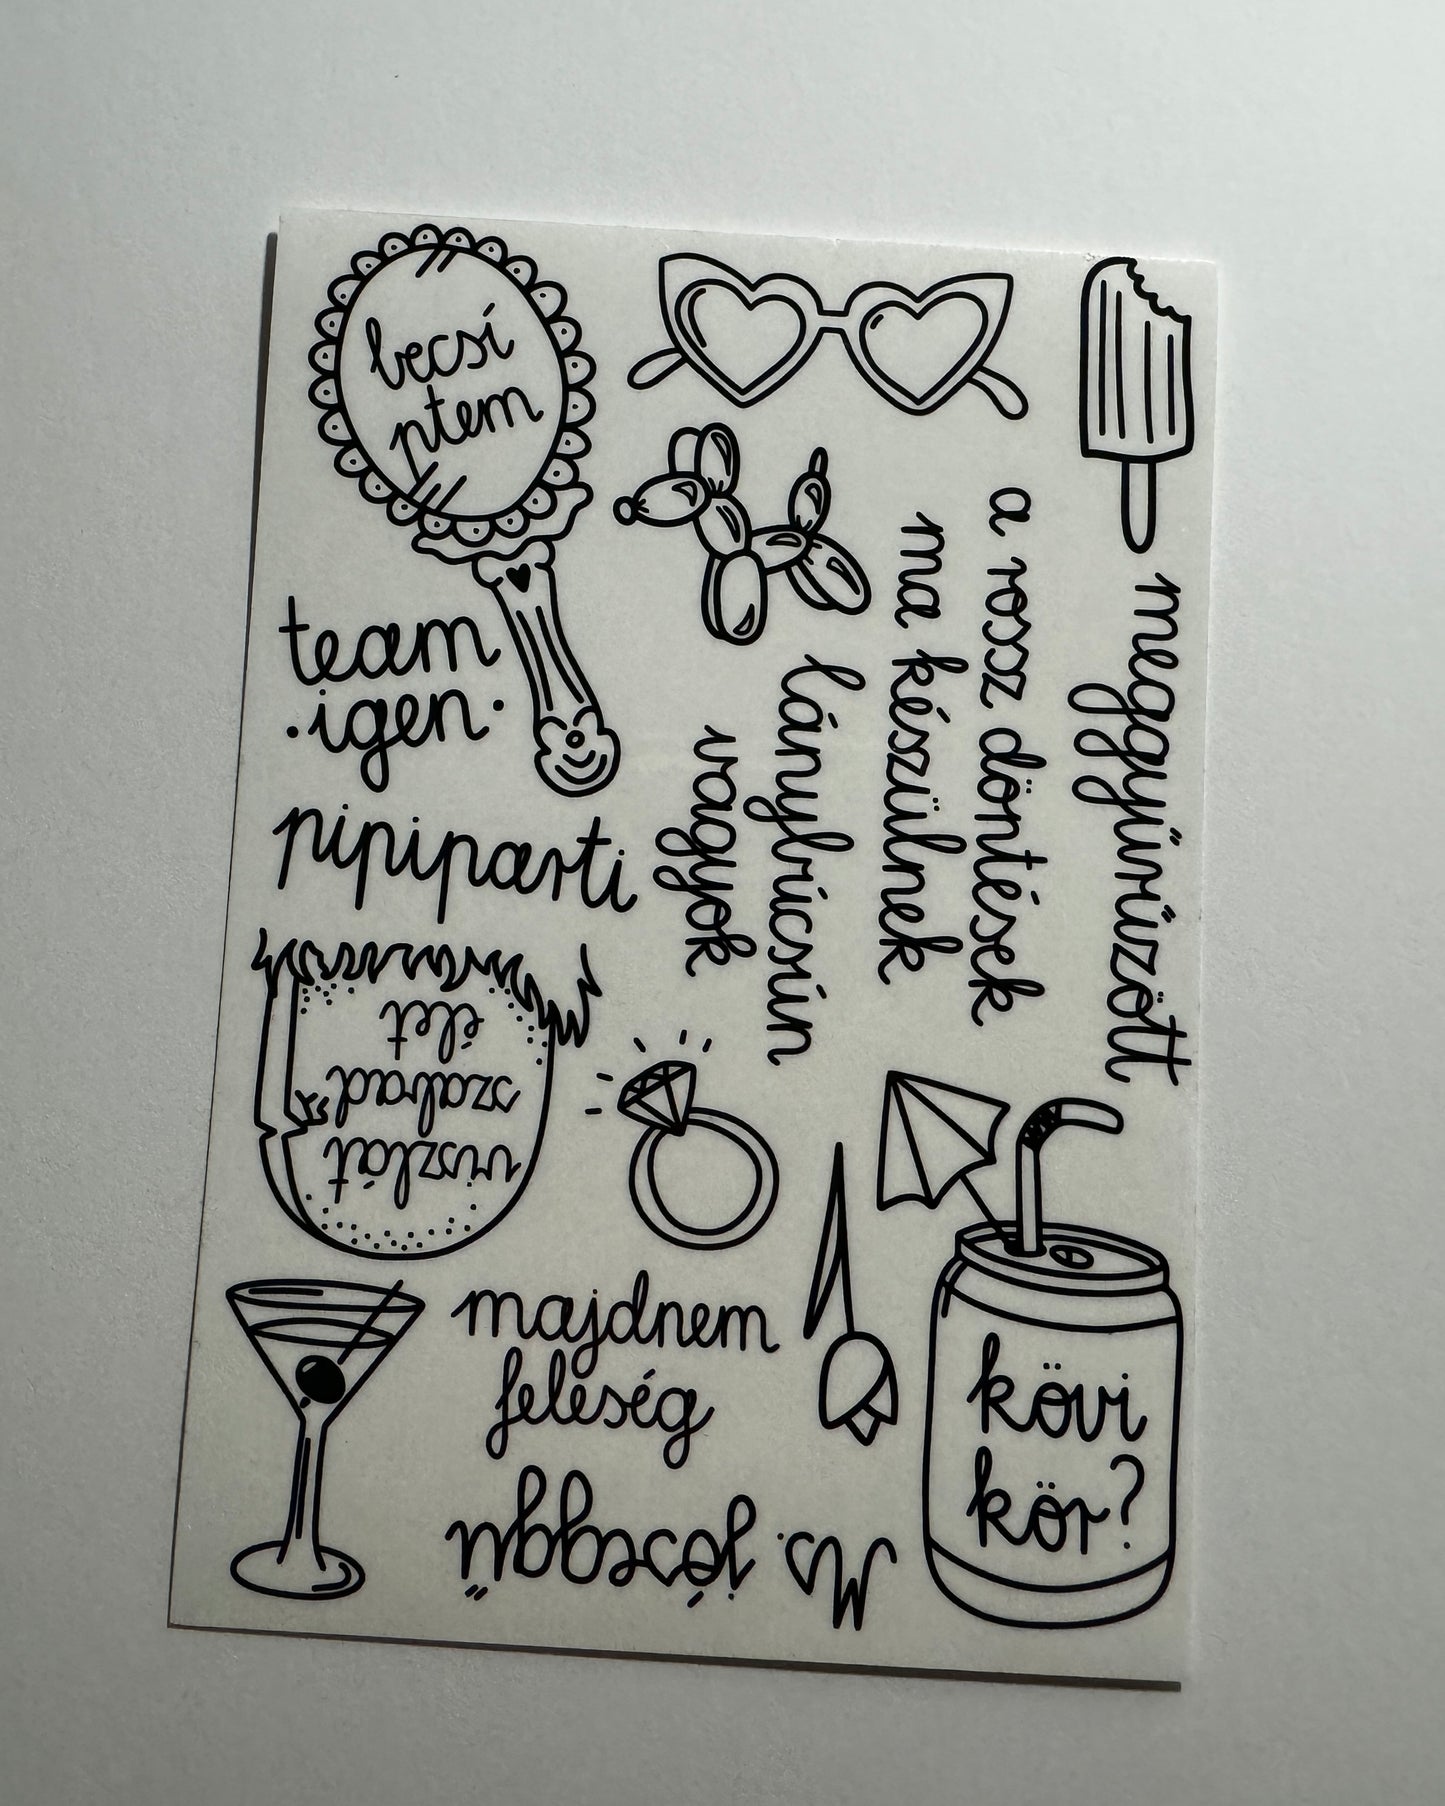 becsí
ptem
team
igen
pipiparti
a rossz döntések
ma készülnek
lánybúcsún
vagyok
meggyűrűzött
viszlát
szabad
élet
majdnem
feleség
Ms. jóseggű
kövi
kör?